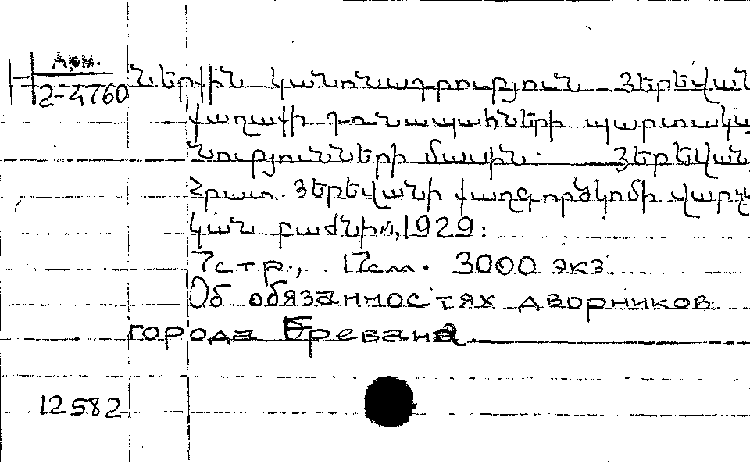 Арм.
2-4760
Ներքին կանոնադրություն Յերեվան
քաղաքի դռնապանների պարտակա
նությունների մասին. Յերեվան,
Հրատ. Յերեվանի քաղգործկոմի վարչ
կան բաժնի, 1929:
7стр., 17см. 3000 экз.
Об обязанностях дворников
города Еревана.
12582